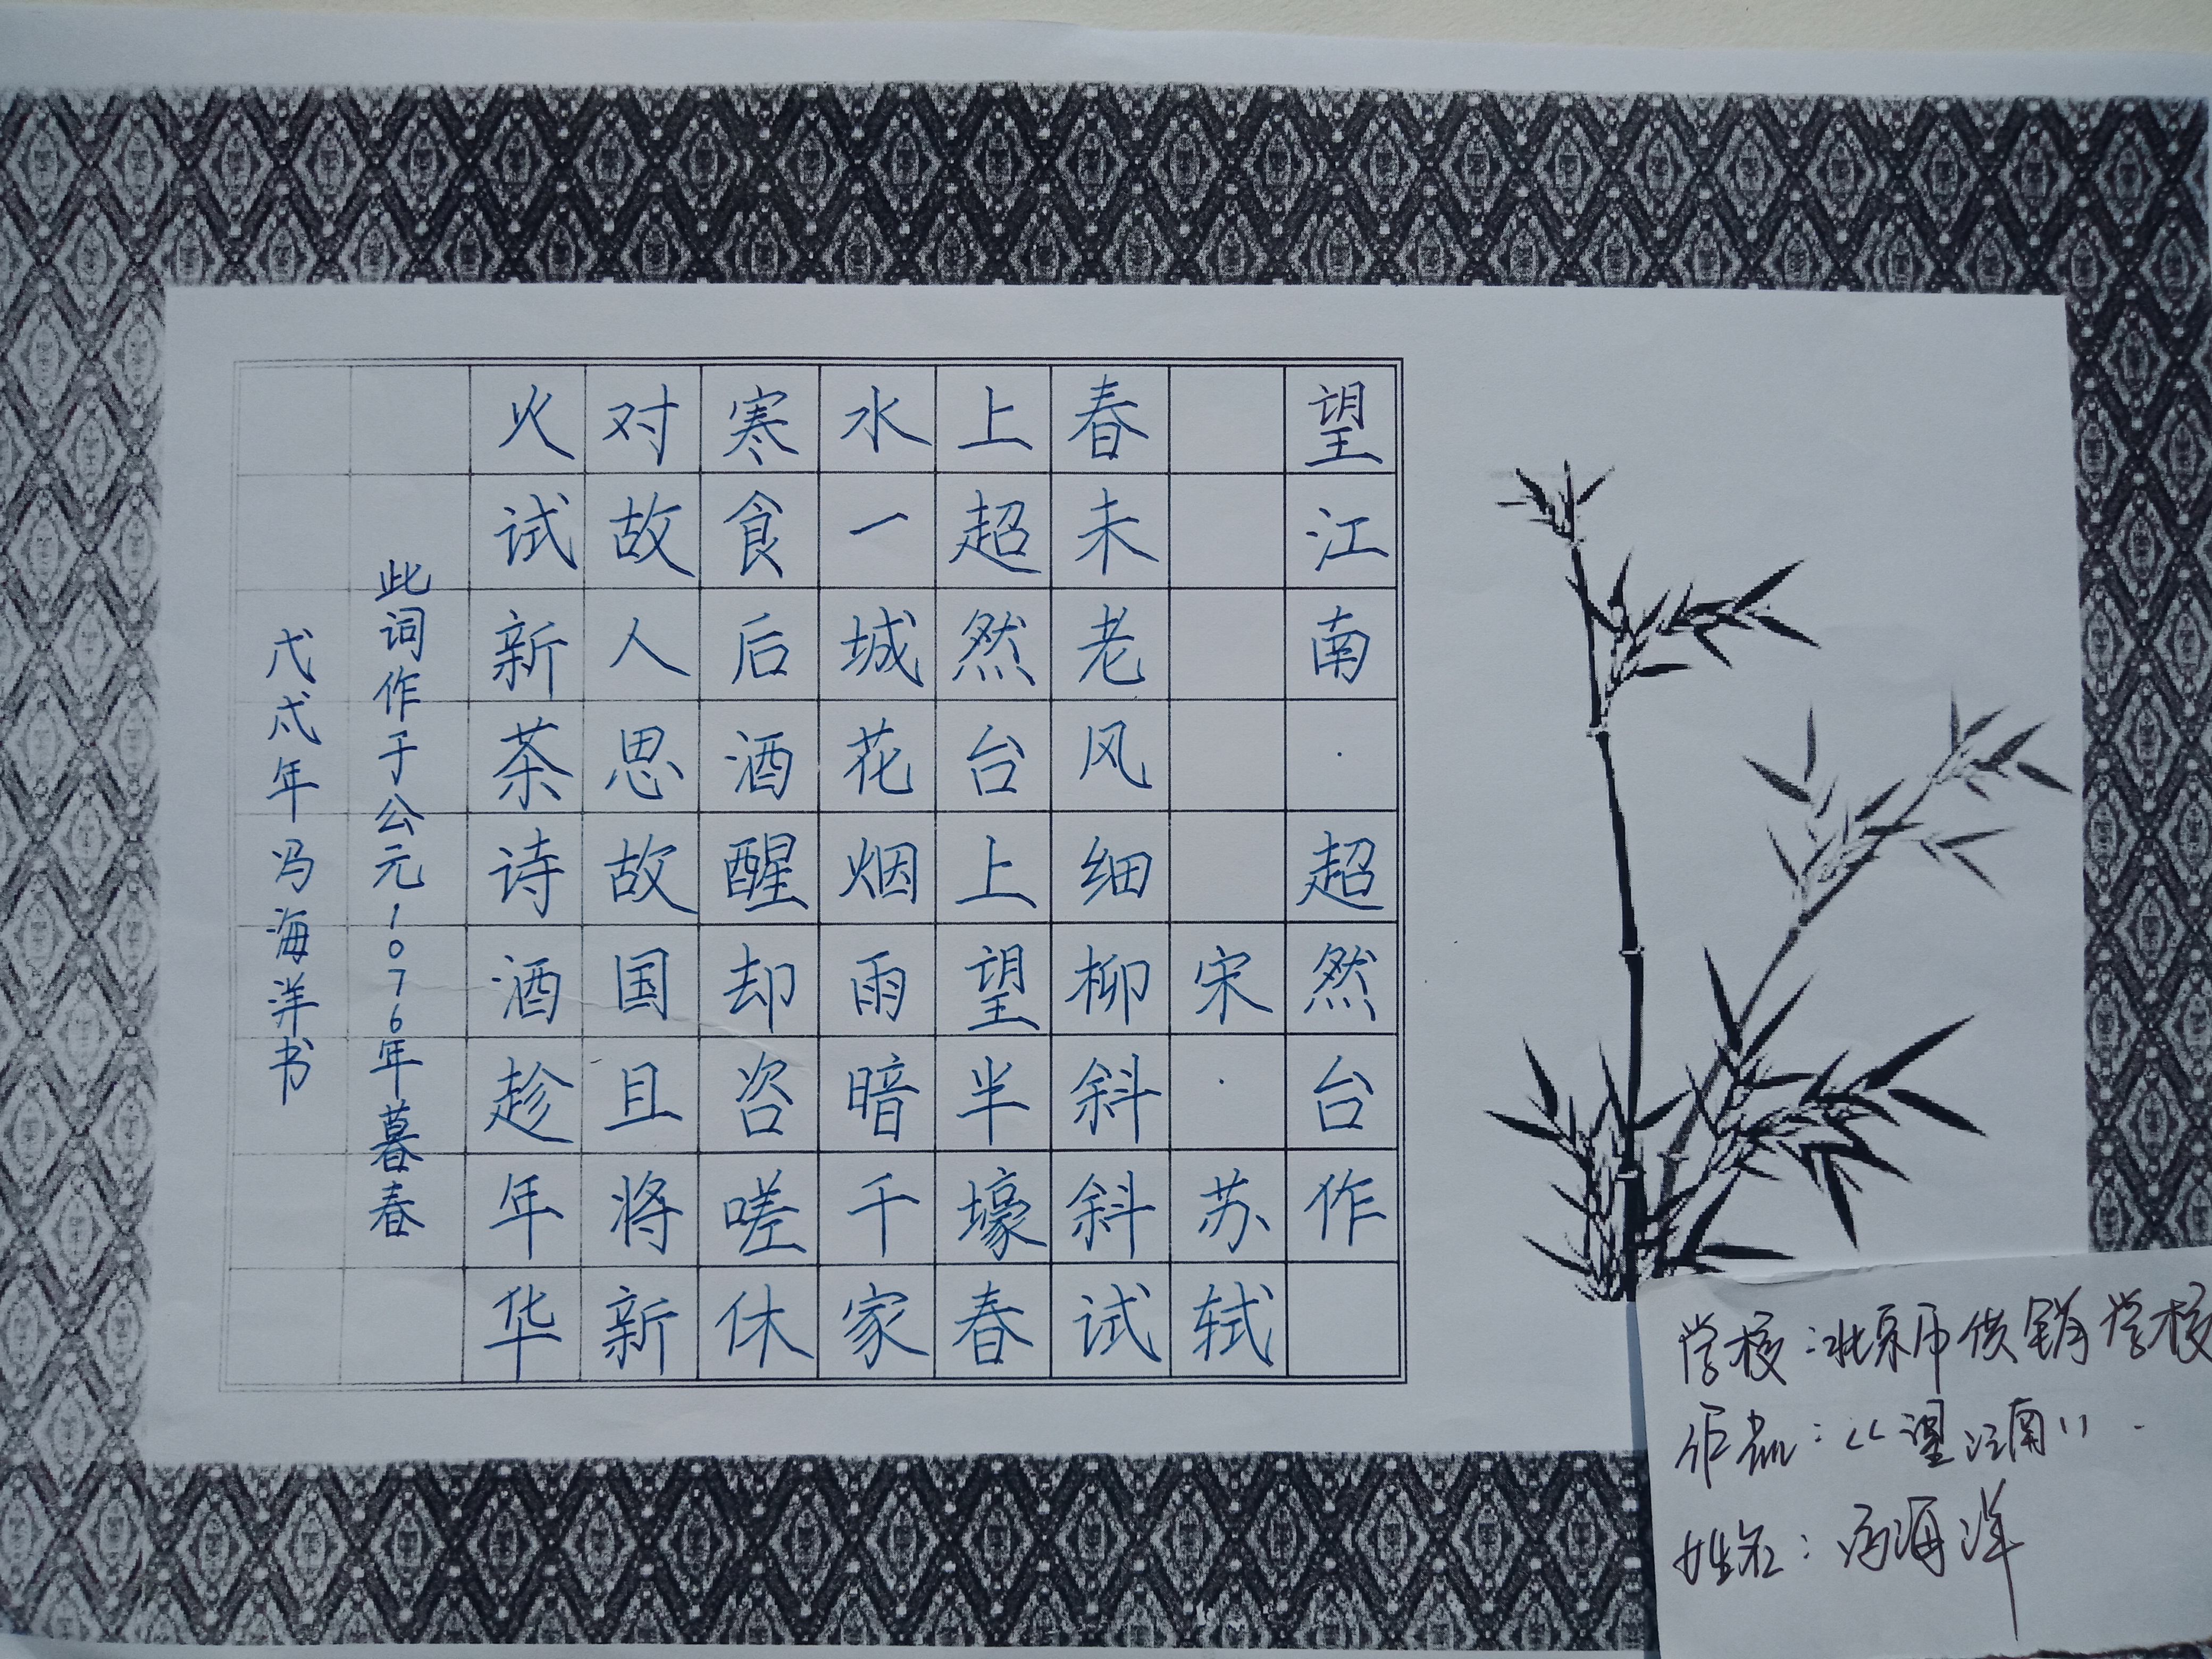 望江南·超然台作
宋·苏轼
春未老风细柳斜斜试
上超然台上望半壕春
水一城花烟雨暗千家
寒食后酒醒却咨嗟休
对故人思故国且将新
火试新茶诗酒趁年华
此词作于公元1076年暮春
戊戌年冯海洋书
学校：北京市供销学校
作品：《望江南》.
姓名：冯海洋